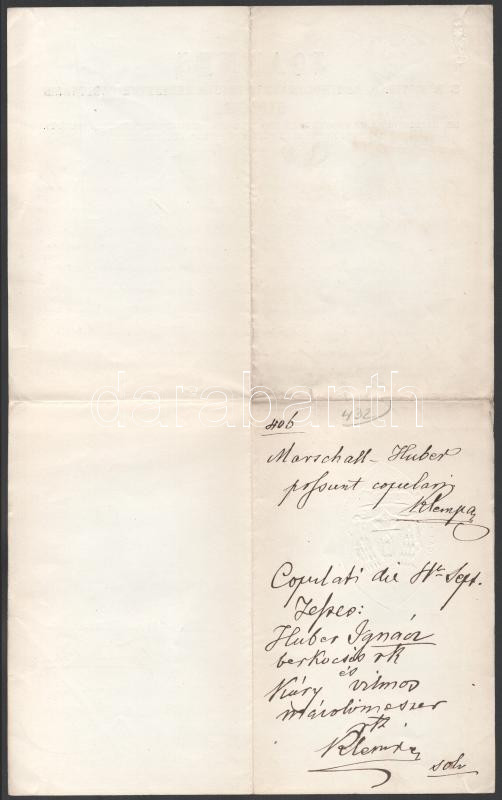 darabanth
406 432
Marschall - Huber
possunt copulari
Klempa
Copulati die 4ta Sept.
Testes:
Huber Ignácz
berkocsis rk
és
Káry Vilmos
rk
Klempa
solv